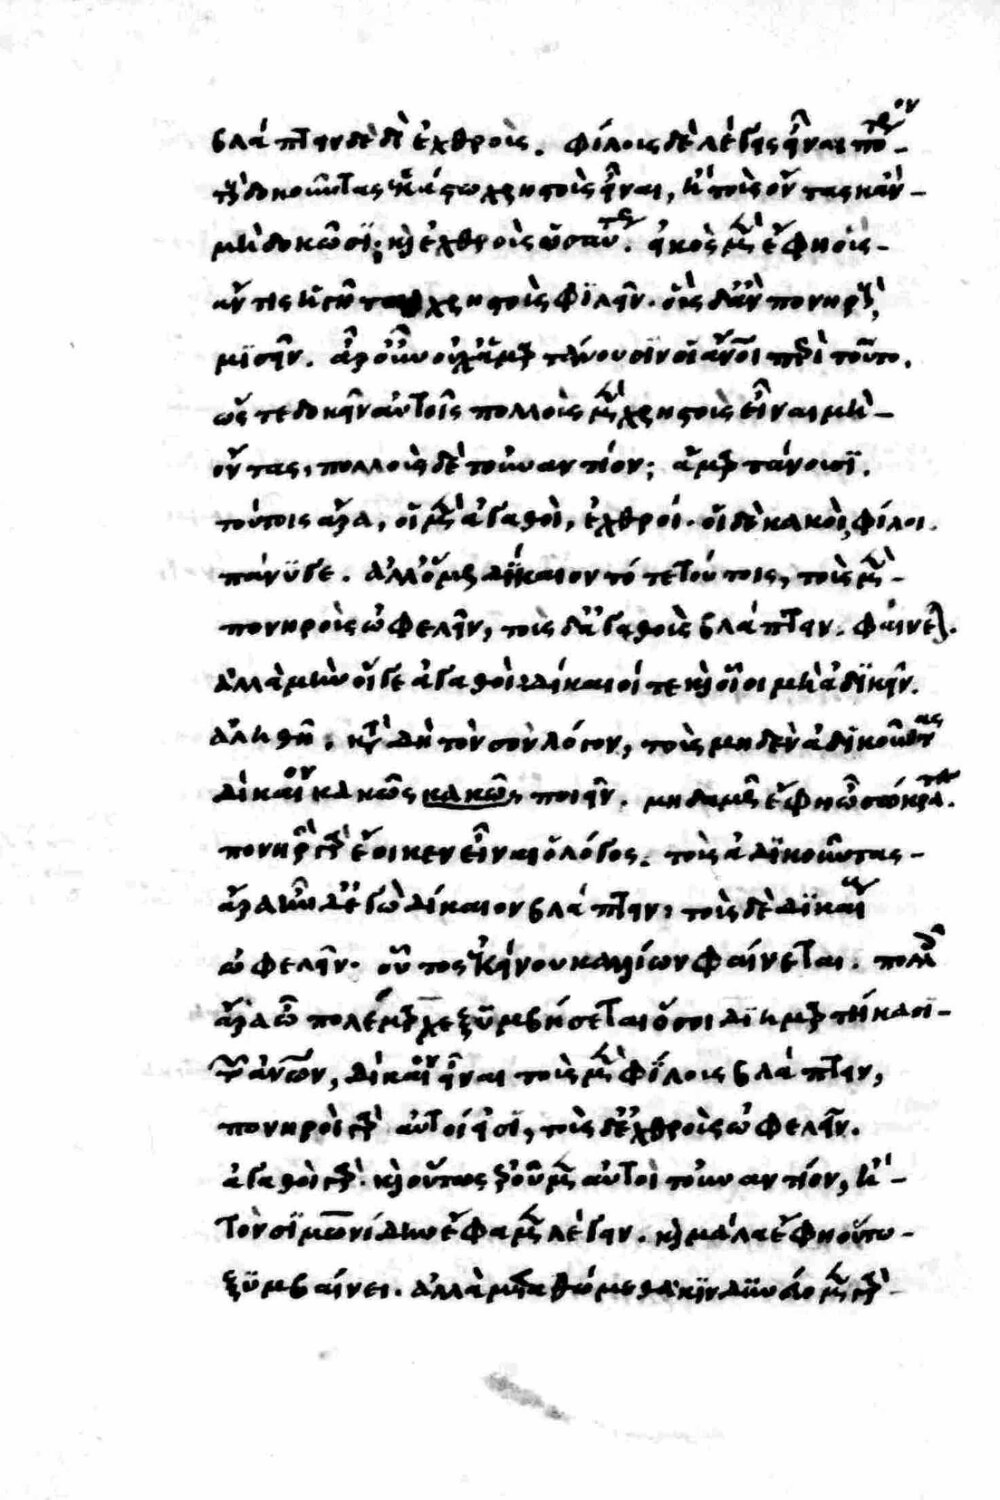 βλάπτειν δὲ δὴ ἐχθροὺς. φίλους δὲ λέγεις εἶναι πότερον
τοὺς δοκοῦντας ἑκάστῳ χρηστοὺς εἶναι, ἢ τοὺς ὄντας κἂν
μὴ δοκῶσι; καὶ ἐχθροὺς ὡσαύτως. εἰκὸς μὲν ἔφη οὓς
ἄν τις ἡγῆται χρηστοὺς φιλεῖν. οὓς δ' ἂν πονηροὺς,
μισεῖν. ἆρ' οὖν οὐχ ἁμαρτάνουσιν οἱ ἄνθρωποι περὶ τοῦτο.
ὥστε δοκεῖν αὐτοῖς πολλοὺς μὲν χρηστοὺς εἶναι μὴ
ὄντας, πολλοὺς δὲ τοὐναντίον; ἁμαρτάνουσι.
τούτοις ἄρα, οἱ μὲν ἀγαθοὶ, ἐχθροί. οἱ δὲ κακοὶ, φίλοι.
πάνυ γε. ἀλλ' ὅμως δίκαιον τότε τούτοις, τοὺς μὲν
πονηροὺς ὠφελεῖν, τοὺς δ' ἀγαθοὺς βλάπτειν. φαίνεται.
ἀλλὰ μὴν οἵ γε ἀγαθοὶ δίκαιοί τε καὶ οἷοι μὴ ἀδικεῖν.
ἀληθῆ. κατὰ δὴ τὸν σὸν λόγον, τοὺς μηδὲν ἀδικοῦντας
δίκαιον κακῶς κακῶς ποιεῖν. μηδαμῶς ἔφη ὦ σώκρατες.
πονηρὸς γὰρ ἔοικεν εἶναι ὁ λόγος. τοὺς ἀδικοῦντας
ἄρα ἦν δ' ἐγὼ δίκαιον βλάπτειν, τοὺς δὲ δικαίους
ὠφελεῖν. οὗτος ἐκείνου καλλίων φαίνεται. πολλοῖς
ἄρα ὦ πολέμαρχε ξυμβήσεται ὅσοι διημαρτήκασι
τῶν ἀνθρώπων, δίκαιον εἶναι τοὺς μὲν φίλους βλάπτειν,
πονηροὶ γὰρ αὐτοῖς εἰσι, τοὺς δ' ἐχθροὺς ὠφελεῖν.
ἀγαθοὶ γάρ. καὶ οὕτως ἐροῦμεν αὐτὸ τοὐναντίον, ἢ
τὸν σιμωνίδην ἔφαμεν λέγειν. καὶ μάλα ἔφη οὕτω
ξυμβαίνει. ἀλλὰ μεταθώμεθα κινδυνεύομεν γὰρ